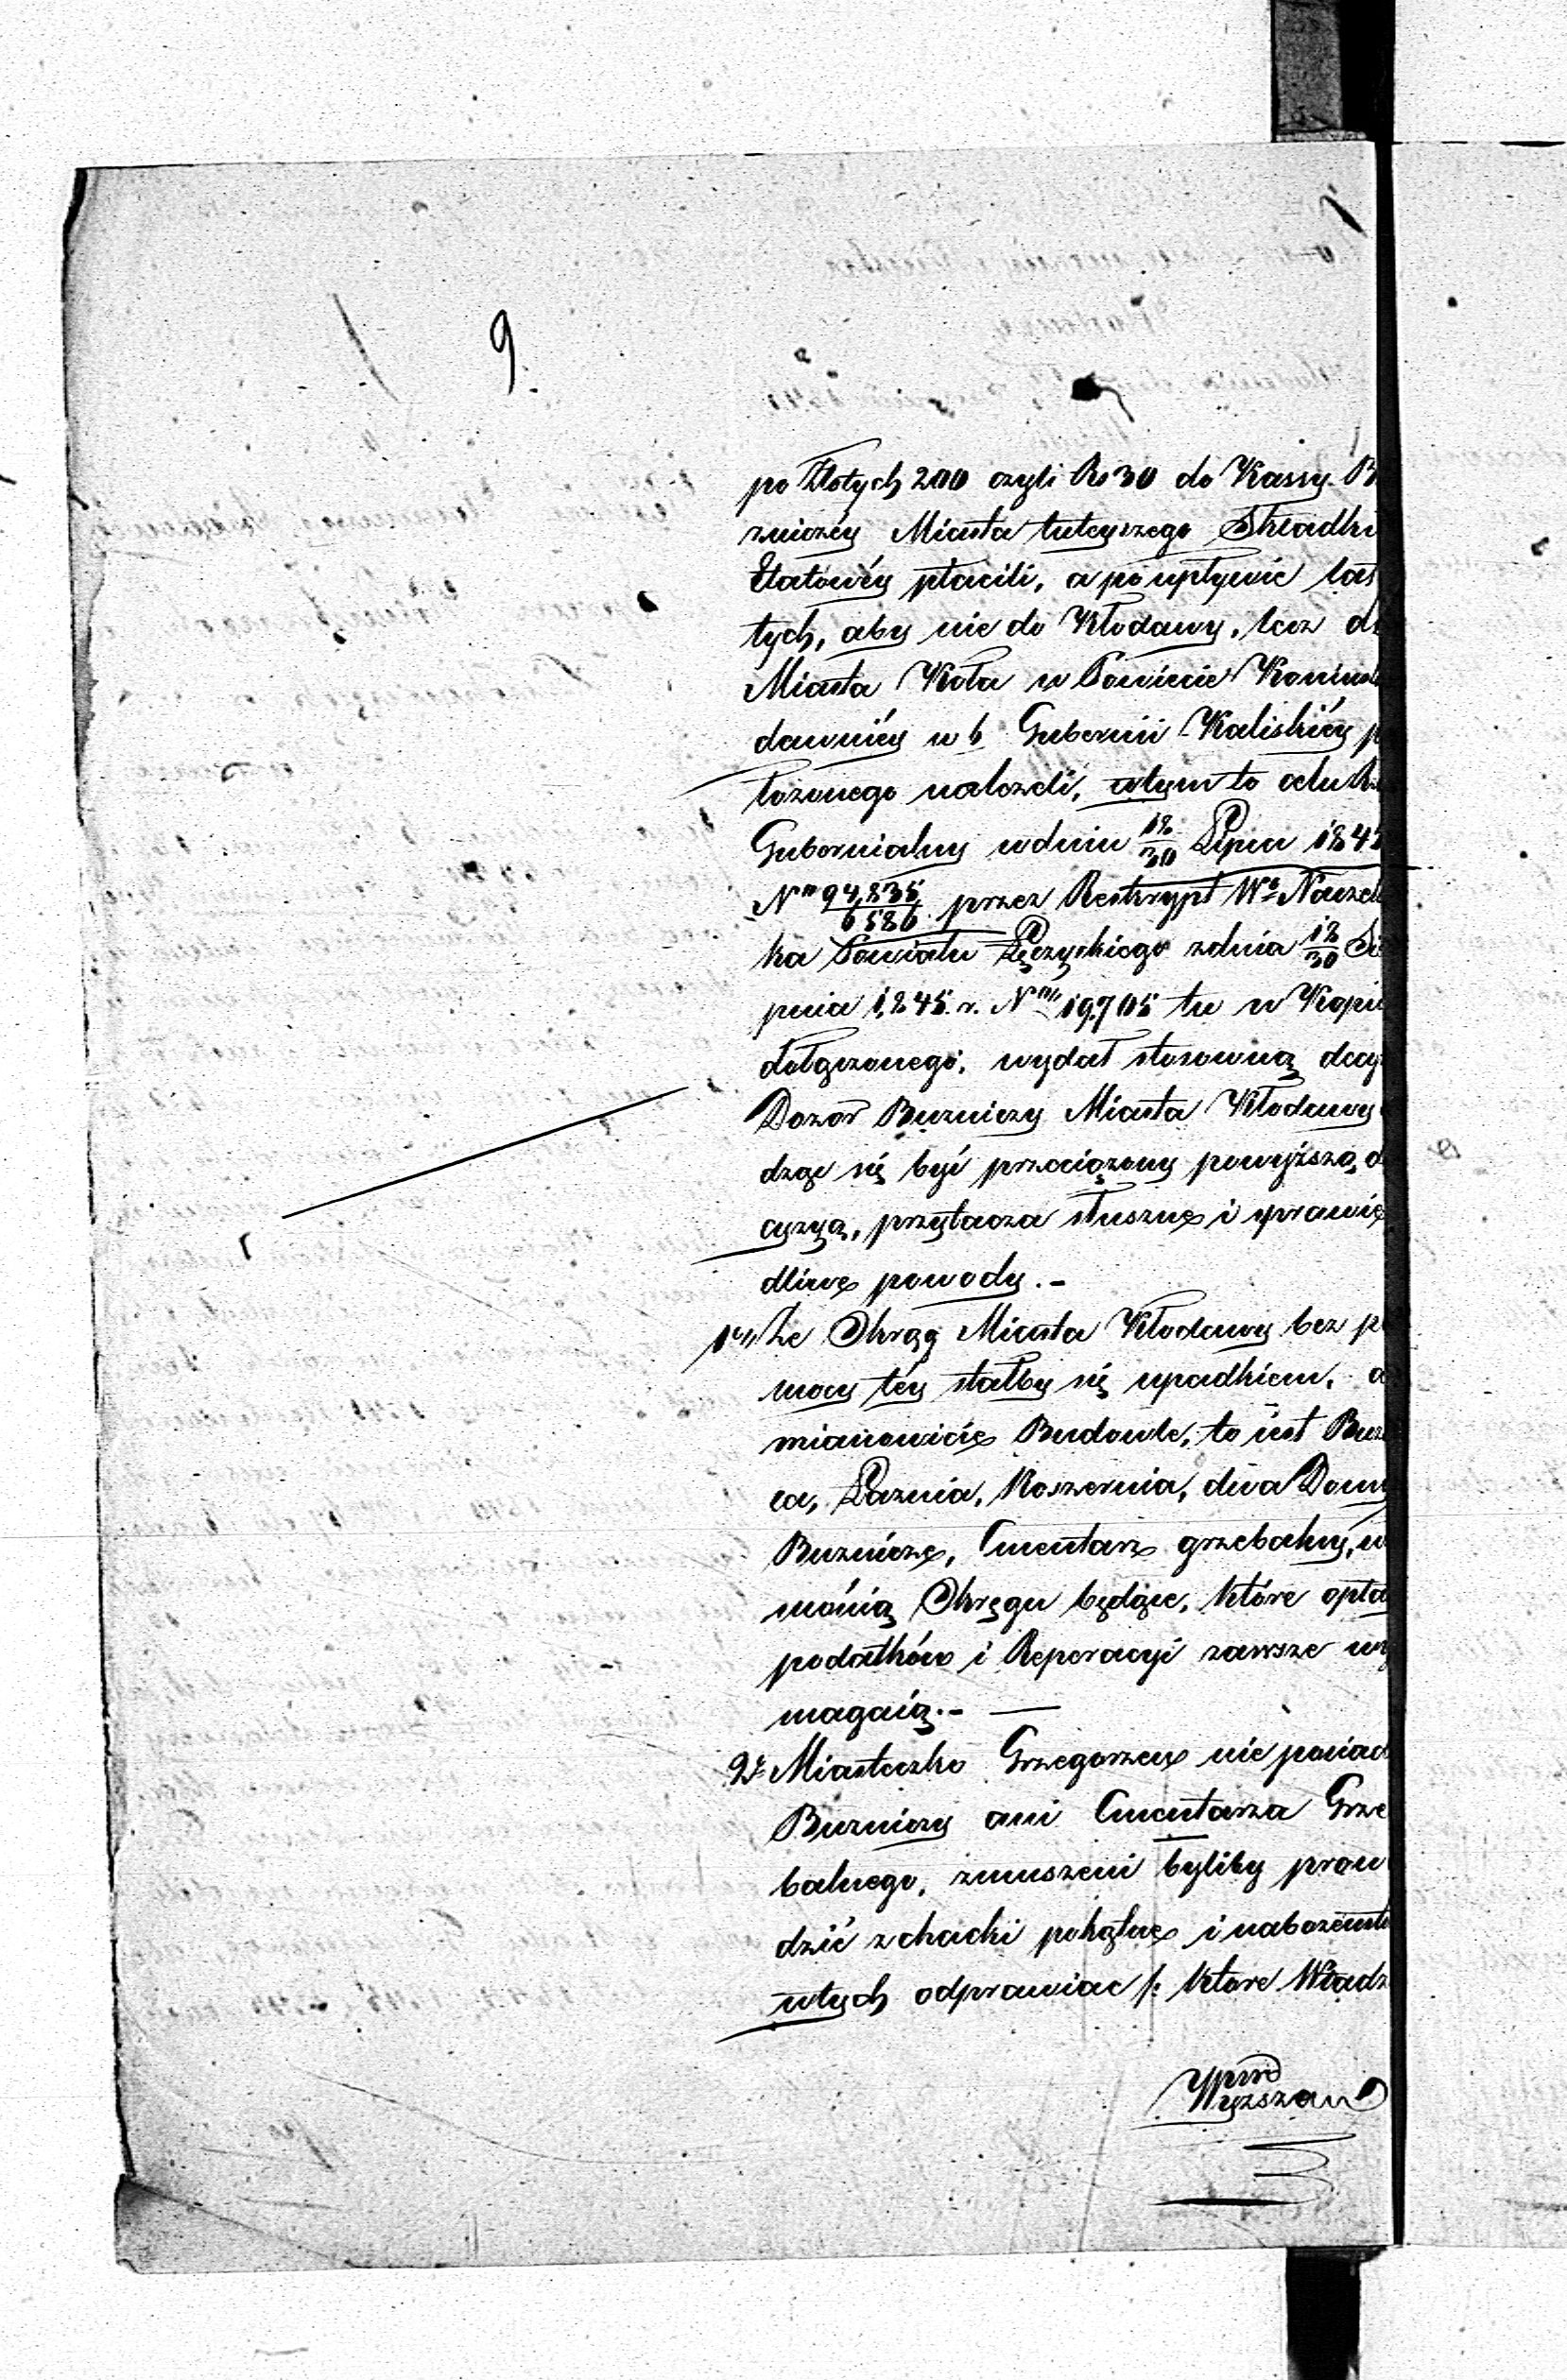 9.
po Złotych 200 czyli Rs 30 do Kassy B
zniczéy Miasta tuteyszego Składki
Etatowéy płacili, a po upływie lat
tych, aby nie do Kłodawy, lecz do
Miasta Koła w Powiecie Konińsk
dawniéy w b. Gubernii Kaliskiéy p
łożonego należeli, wtym to celu Rz
Gubernialny w dniu 18/30 Lipca 1845
Nro 94,835/6586 przez Reskrypt Wo Naczel
ka Powiatu Łęczyckiego z dnia 18/30 Si
pnia 1,845. r. Nro 19,705 tu w Kopii
dołączonego, wydał stosowną decy
Dozór Bużniczy Miasta Kłodawy
dząc się być przeciążony powyższą de
cyzyą, przytacza słuszne i sprawie
dliwe powody. -
1o Że Okrąg Miasta Kłodawy bez po
mocy téy stałby się upadkiem, a
mianowicie Budowle, to iest Buż
ca, Łaznia, Koszernia, dwa Domy
Buznicze, Cmentarz grzebalny, w
mónią Okręgu będące, które opła
podatków i Reperacyi zawsze wy
magaią. -
2o Miasteczko Grzegorzew nie posiad
Buznicy ani Cmentarza Grze
balnego, zmuszeni byliby prow
dzić zchacki pokątne i nabożeńst
wtych odprawiac /: które Władz
Wyższan